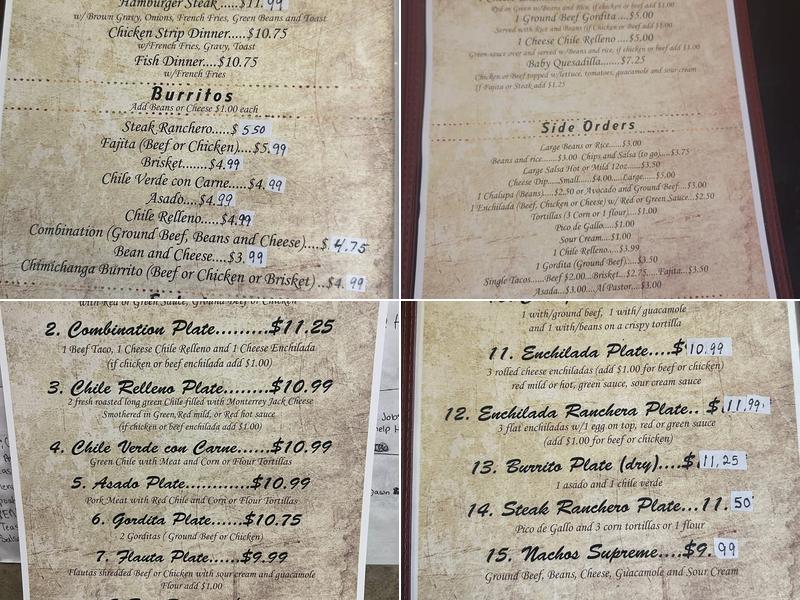 Hamburger Steak.....$11.99
w/Brown Gravy, Onions, French Fries, Green Beans and Toast
Chicken Strip Dinner....$10.75
w/French Fries, Gravy, Toast
Fish Dinner....$10.75
w/French Fries
Burritos
Add Beans or Cheese $1.00 each
Steak Ranchero.....$ 5.50
Fajita (Beef or Chicken)....$5.99
Brisket........$4.99
Chile Verde con Carne.....$4.99
Asado....$4.99
Chile Relleno.....$4.99
Combination (Ground Beef, Beans and Cheese)....$.4.75
Bean and Cheese....$3.99
Chimichanga Burrito (Beef or Chicken or Brisket) ..$4.99
1 Ground Beef Gordita ....$5.00
Served with Rice and Beans (if Chicken or Beef add $1.00
1 Cheese Chile Relleno ....$5.00
Green sauce over and served w/Beans and rice, if chicken or beef add $1.00
Baby Quesadilla......$7.25
Chicken or Beef topped w/lettuce, tomatoes, guacamole and sour cream
If Fajita or Steak add $1.25
Side Orders
Large Beans or Rice.....$3.00
Beans and rice......$3.00 Chips and Salsa (to go)....$3.75
Large Salsa Hot or Mild 12oz....$3.50
Cheese Dip.....Small......$4.00.....Large.....$5.00
1 Chalupa (Beans)....$2.50 or Avocado and Ground Beef....$3.00
1 Enchilada (Beef, Chicken or Cheese) w/ Red or Green Sauce...$2.50
Tortillas (3 Corn or 1 flour)....$1.00
Pico de Gallo....$1.00
Sour Cream....$1.00
1 Chile Relleno...$3.99
1 Gordita (Ground Beef)....$3.50
Single Tacos......Beef $2.00...Brisket...$2.75....Fajita...$3.50
Asada...$3.00....Al Pastor....$3.00
with Red or Green Sauce, Ground Beef or Chicken
2. Combination Plate.........$11.25
1 Beef Taco, 1 Cheese Chile Relleno and 1 Cheese Enchilada
(if chicken or beef enchilada add $1.00)
3. Chile Relleno Plate.......$10.99
2 fresh roasted long green Chile filled with Monterrey Jack Cheese
Smothered in Green,Red mild, or Red hot sauce
(if chicken or beef enchilada add $1.00)
4. Chile Verde con Carne......$10.99
Green Chile with Meat and Corn or Flour Tortillas
5. Asado Plate..........$10.99
Pork Meat with Red Chile and Corn or Flour Tortillas
6. Gordita Plate....$10.75
2 Gorditas ( Ground Beef or Chicken)
7. Flauta Plate.....$9.99
Flautas shredded Beef or Chicken with sour cream and guacamole
Flour add $1.00
1 with/ground beef, 1 with/ guacamole
and 1 with/beans on a crispy tortilla
11. Enchilada Plate....$10.99
3 rolled cheese enchiladas (add $1.00 for beef or chicken)
red mild or hot, green sauce, sour cream sauce
12. Enchilada Ranchera Plate.. $.11.99
3 flat enchiladas w/1 egg on top, red or green sauce
(add $1.00 for beef or chicken)
13. Burrito Plate (dry)....$.11.25
1 asado and 1 chile verde
14. Steak Ranchero Plate...11.50
Pico de Gallo and 3 corn tortillas or 1 flour
15. Nachos Supreme....$9.99
Ground Beef, Beans, Cheese, Guacamole and Sour Cream